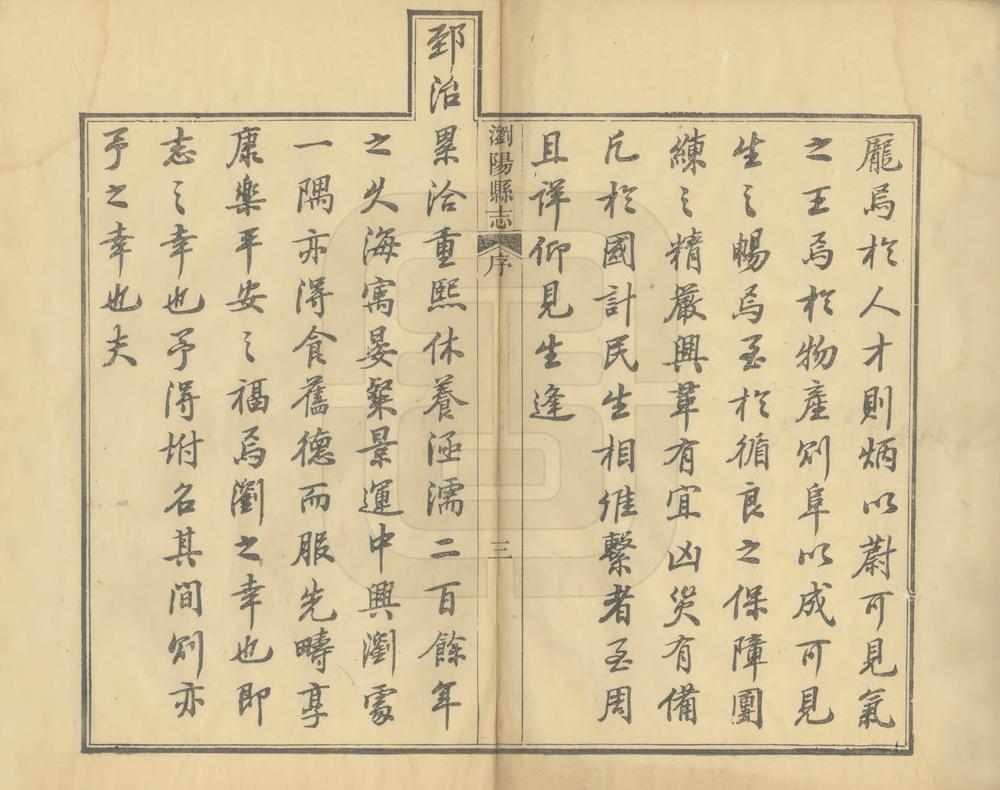 龎焉於人才則炳以蔚可見氣
之王焉於物產則阜以成可見
生之暢焉至於循良之保障團
練之精嚴興革有宜凶災有備
凡於國計民生相維繫者至周
且詳仰見生逢
瀏陽縣志 序 三
郅治累洽重熙休養涵濡二百餘年
之久海㝢晏粲景運中興瀏處
一隅亦得食舊德而服先疇享
康樂平安之福焉瀏之幸也即
志之幸也予得坿名其間則亦
予之幸也夫